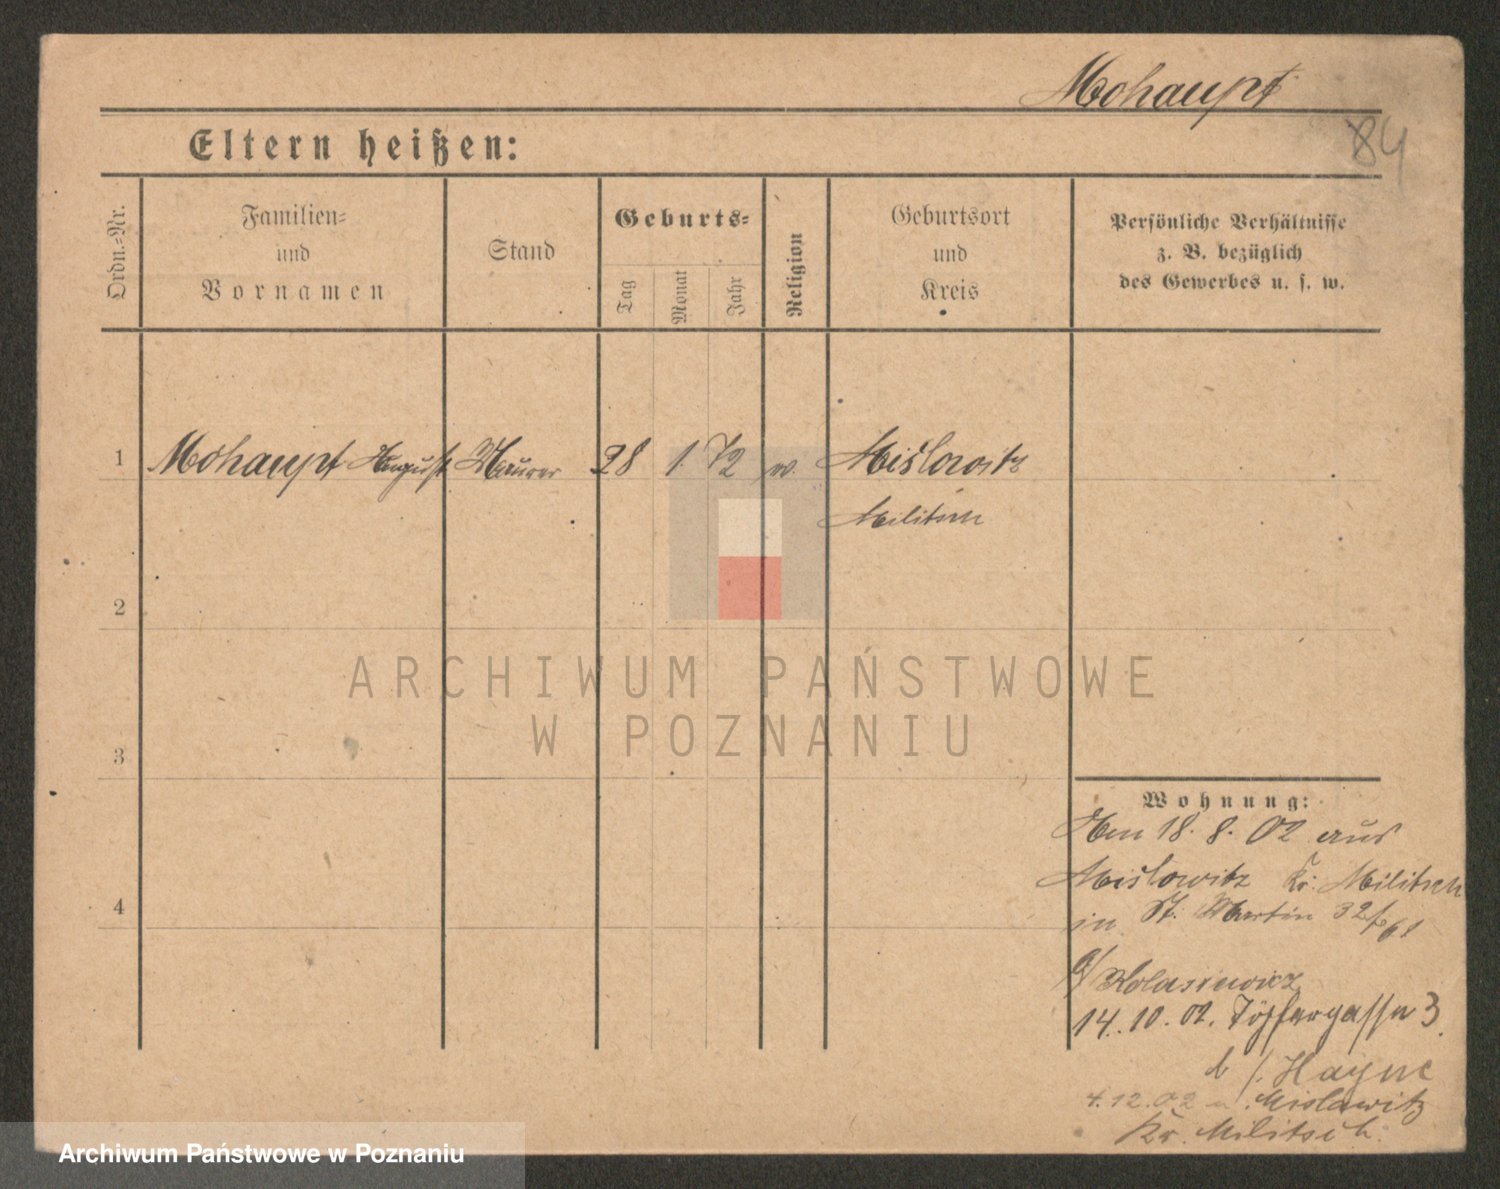 Mohaupt
84
Eltern heißen:
Ordn.-Nr.
Familien-
und
Vornamen
Stand
Geburts-
Tag
Monat
Jahr
Religion
Geburtsort
und
Kreis
Persönliche Verhältnisse
z. B. bezüglich
des Gewerbes u. s. w.
1 Mohaupt August Maurer 28 1. 72 Mislowitz
Militsch
2
3
4
Wohnung:
Den 18. 8. 02 aus
Mislowitz Kr. Militsch
in St. Martin 32
14. 10. 02. Töpfergasse 3.
b/. Hayne
4.12.02 n. Mislawitz
Kr. Militsch.
ARCHIWUM PAŃSTWOWE
W POZNANIU
Archiwum Państwowe w Poznaniu